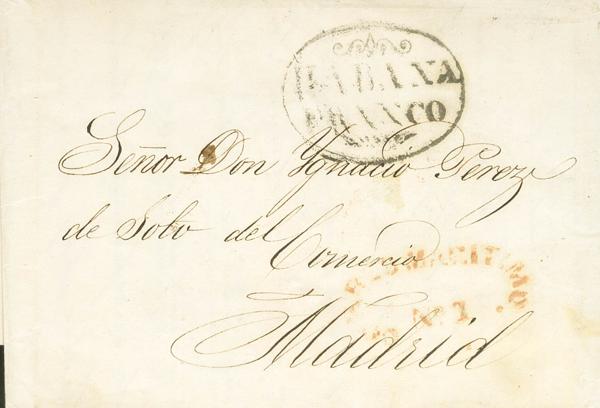 HABANA
FRANCO
Señor Don Ygnacio Perez
de Soto del Comercio
MARITIMO
Nº 1.
Madrid